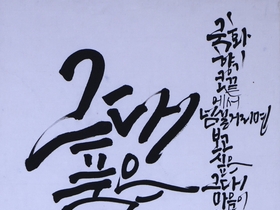 그대
품은
국화
향기
코끝
에서
넘실거리면
보고
싶은
그대
마음이